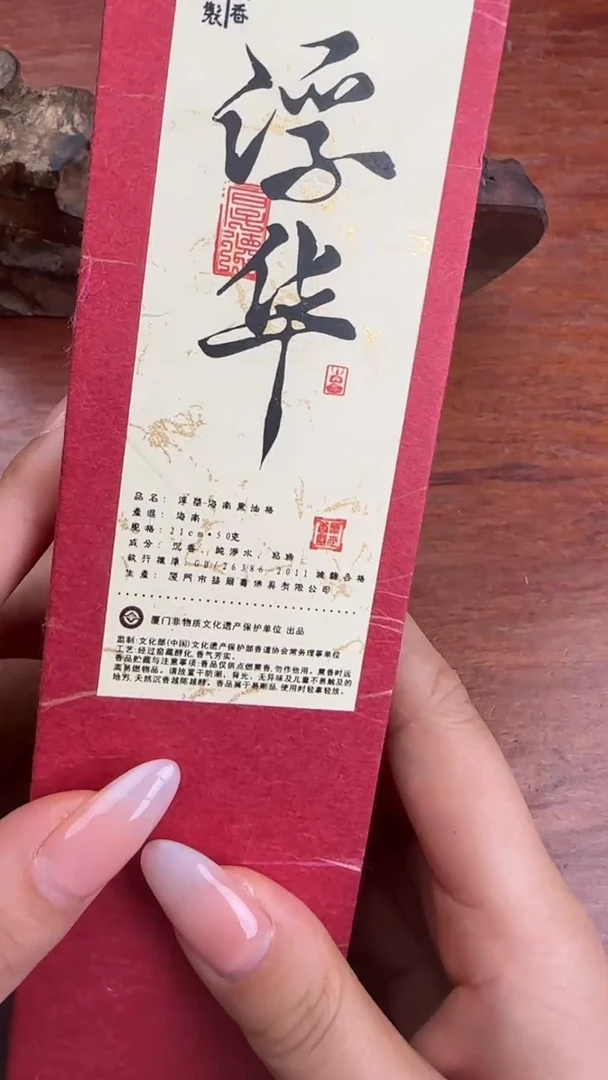 製香
浮华
品名：浮華-海南黑油格
產區：海南
规格：21cm*50克
成分：沉香、純淨水、粘粉
執行標準：GB/26386-2011 檢驗合格
生產：厦門市
厦门非物质文化遗产保护单位 出品
监制:文化部(中国)文化遗产保护部香道协会常务理事单位
工艺:经过窑藏醇化,香气芳实。
香品贮藏与注意事项:香品仅供点燃熏香,勿作他用，熏香时远
离易燃物品。请放置干防潮、背光、无异味及儿童不易触及的
地方,天然沉香越陈越醇。香品属于易断品,使用时轻拿轻放。